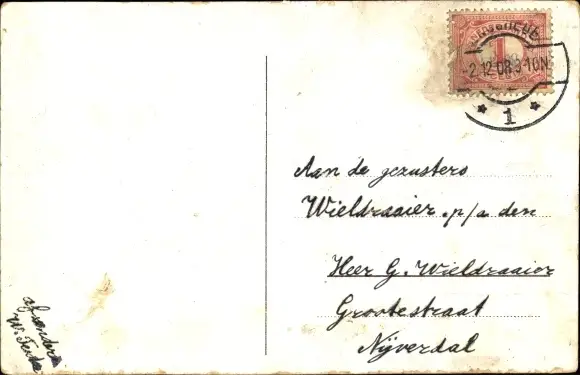 1
-2.12.08.9-10N
1
Aan de gezusters
Wieldraaier p/a den
Heer G. Wieldraaier
Grootestraat
Nijverdal
afzender